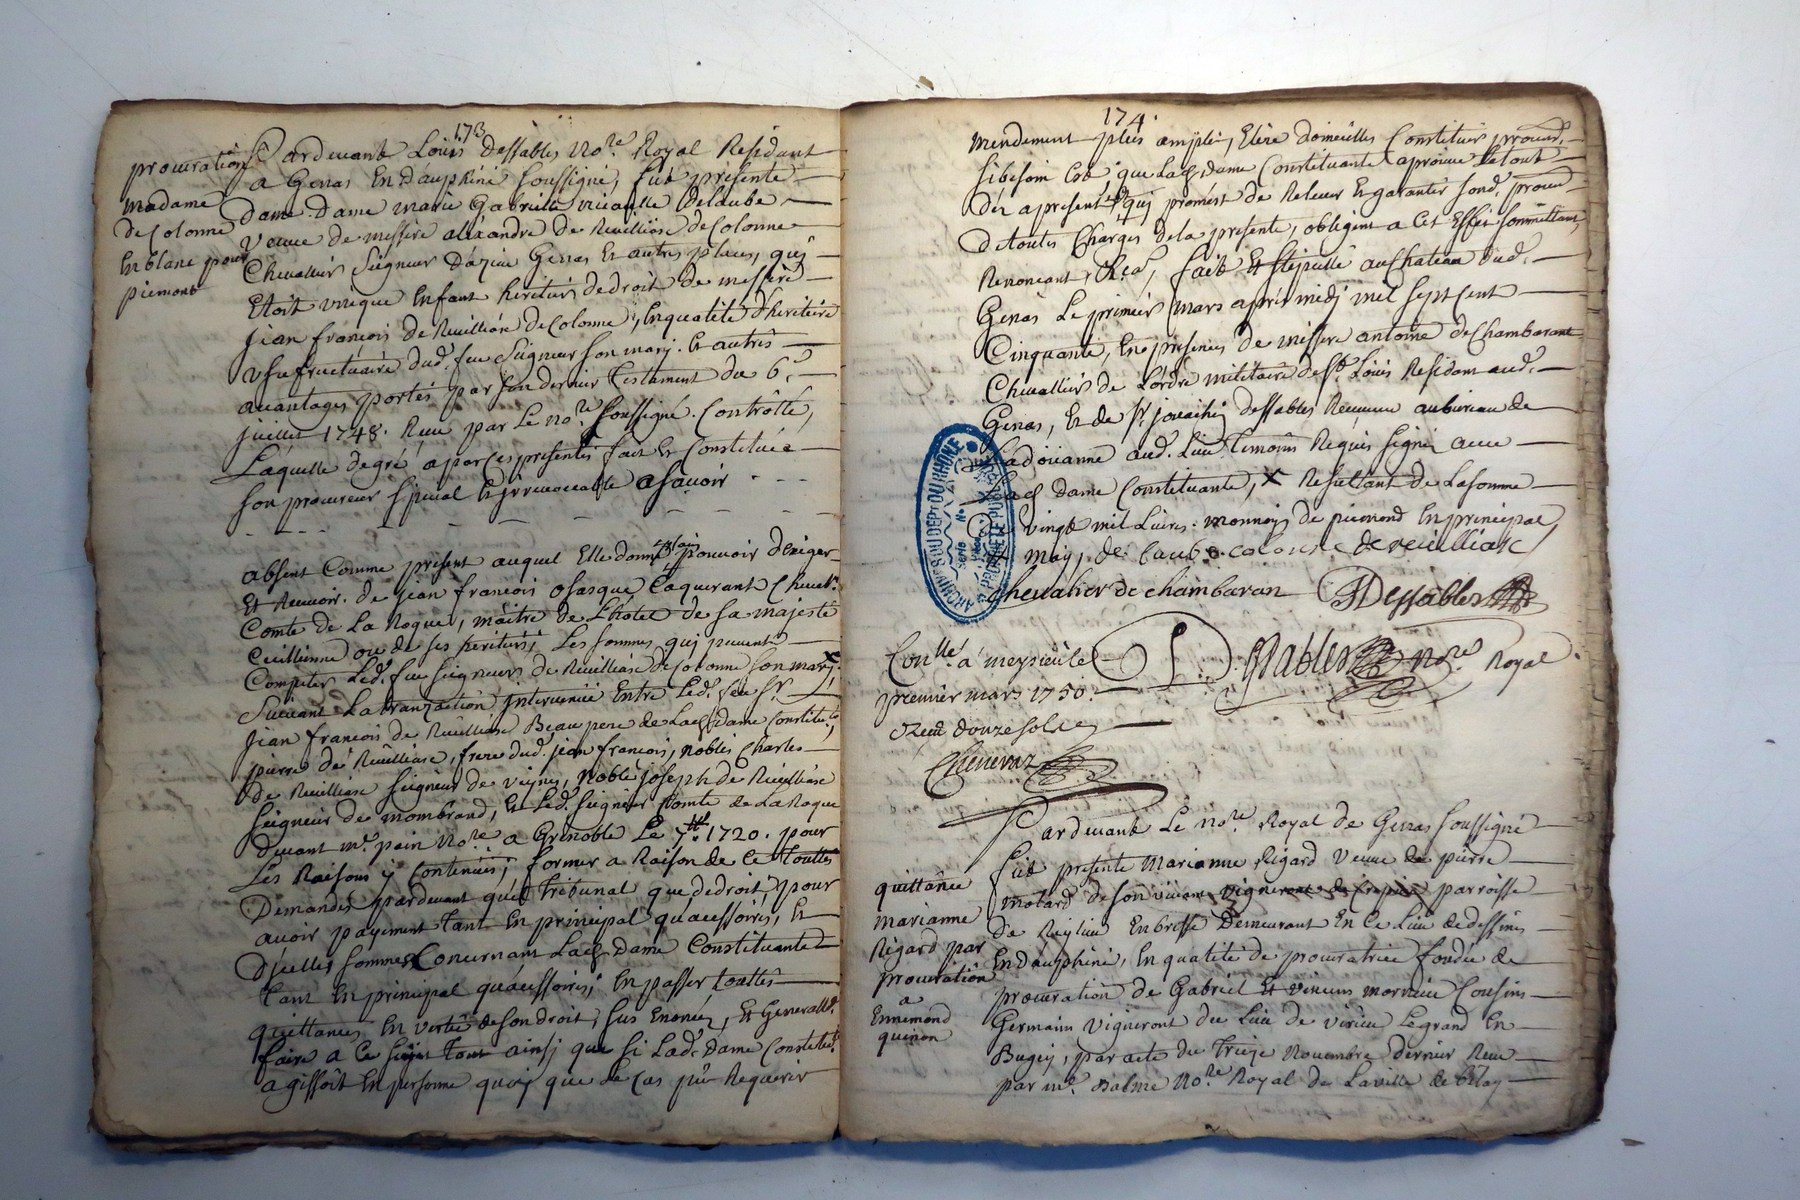 173
procuration
Madame
de Colonne
En blanc pour
piemont
Pardevant Louis dessables No.re Royal Residant
a Genas En dauphiné soussigné, fut présente
dame dame marie Gabrielle Delaube
veuve de messire alexandre de Reuilliasc de Colonne
Chevallier Seigneur D'azieu Genas Et autres places, quj
Etoit unique Enfant heritier de droit de messire
jean françois de Reuilliasc de Colonne, En qualité d'heritiere
usufructuaire dud. feu Seigneur son marj. Et autres
avantages portés par son dernier Testament du 6.e
juillet 1748. Reçu par Le no.re soussigné. Controllé,
Laquelle de gré a par Ces presentes fait Et Constitué
son procureur special Et irrevocable asavoir
absent Comme present auquel Elle donne plain pouvoir d'Exiger
Et Recevoir. de jean francois osasque Chevalr.
Comte de La Roque, maitre de L'hotel de sa majesté
ou de ses heritiers, Les sommes quj peuvent
Competer Led. feu seigneur de Reuilliasc de Colonne son marj. x
Suivant La tranzaction Intervenue Entre Led. feu sr.
jean francois de Reuilliasc Beaupere de Lad. Dame Constitute,
pierre de Reuilliasc, frere dud. jean francois, nobles Charles
de Reuilliasc seigneur de veigny, Noble joseph de Reuilliasc
seigneur de mombrand, Et Led. seigneur Comte de La Roque
devant m.e pain No.re a Grenoble Le 7.bre 1720. pour
Les Raisons y Contenües, former a Raison de Ce touttes
Demandes pardevant quel Tribunal que de droit, pour
avoir payement tant En principal qu'accessoires, Et
D'icelles sommes Concernant Lad. Dame Constituante
tant En principal qu'accessoires, En passer touttes
quittances En vertu de son droit, sus Enoncé, Et Generallt.
faire a Ce sujet tout ainsj que si Lad. Dame Constitute.
agissoit En personne quoy que le Cas pût Requerir
174.
mendement plus ample, Elire domicilles Constituer procur.
si besoin Est que Lad. dame Constituante aprouve de tout
des apresent & quj promest de Relever Et garantir sond. procur.
de toutes Charges de la presente, obligent a Cet Effet sommettant,
Renoncant, &c.a, fait Et stipullé au Chateau dud.
Genas Le premier mars après midj mil sept Cent
Cinquante, En presences de messire antoine de Chambaran
Chevallier de L'ordre militaire de St. Louis Residant aud.
Genas, Et de sr. joachin dessables Receveur au bureau de
La doüanne aud. Lieu temoins Requis signé avec
Lad. dame Constituante, x Resultant de La somme
de vingt mil Livres. monnoy de piemond En principal,
may, de Laube colonne de reuilliasc
Chevalier de chambaran JDessables
Conllé. a meysieule Dessables no.re Royal
premier mars 1750
Receu douze sols
Chenevaz
ARCHIVES DU DEPT DU RHONE
PROPRIETE PUBLIQUE
quittance
marianne
Rigard par
procuration
a
Ennemond
quinon
Pardevant Le no.re Royal de Genas soussigné
fut presente Marianne Rigard veuve de pierre
motard de son vivant vigneront de Crepieu parroisse
de Reylieu En bresse Demeurant En Ce Lieu de dessines
En dauphiné, En qualité de procuratrice fondée de
procuration de Gabriel Et vincens mornieu Cousins
Germains vigneront du Lieu de virieu Le grand En
Bugey, par acte du treize Novembre dernier Reçu
par m.e Balme No.re Royal de La ville de Bellay